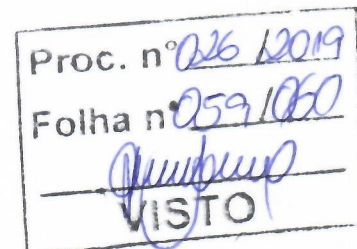 Proc. nº 026/2019
Folha nº 059/060
VISTO